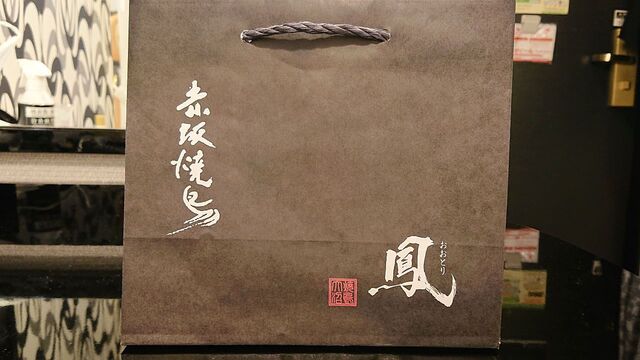 赤坂焼鳥
鳳
おおとり